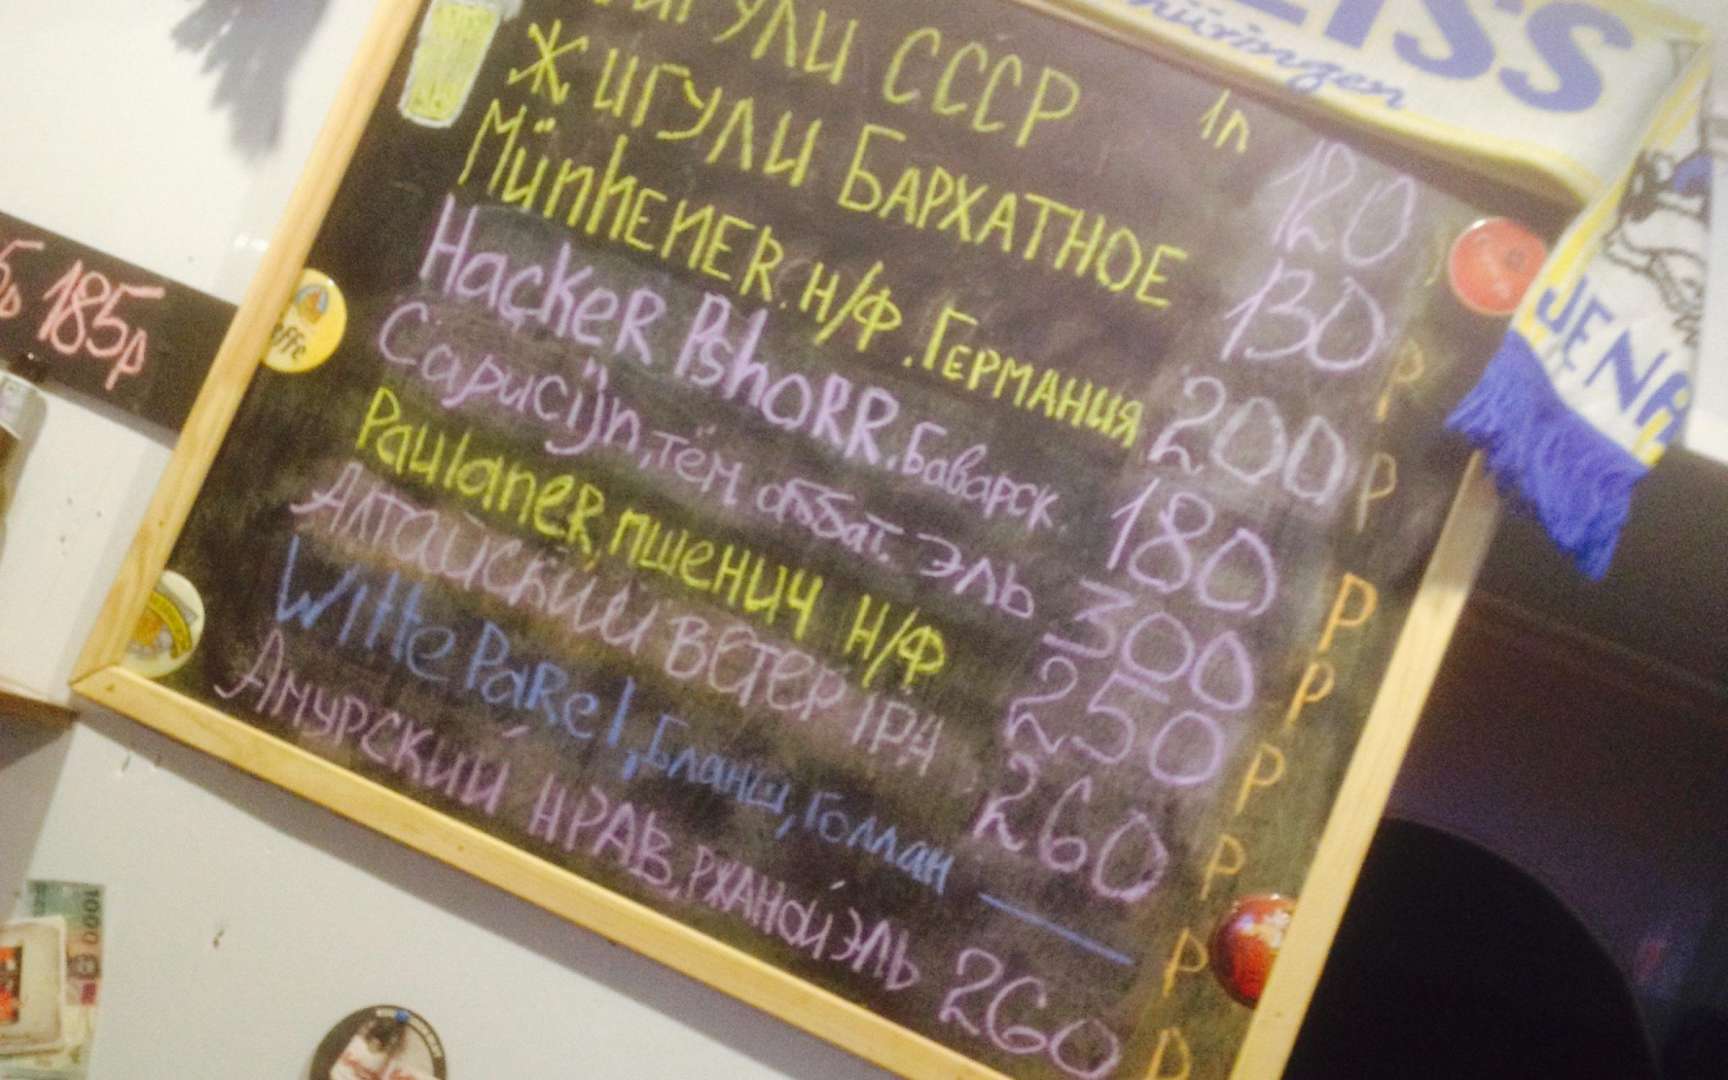 ИГУЛИ СССР 1л 120
ЖИГУЛИ БАРХАТНОЕ 130 Р
Münhener. н/ф. Германия 200 Р
Hacker Pshorr, Баварск. 180 Р
Capucijn, тём. аббат. эль 300 Р
Paulaner, пшенич н/ф 250 Р
Алтайский ветер IPA 260 Р
Witte Parel, Бланш, Голлан — Р
Амурский нрав, ржаной эль 260 Р
185р
affe
EISS
hüringen
JENA
1000